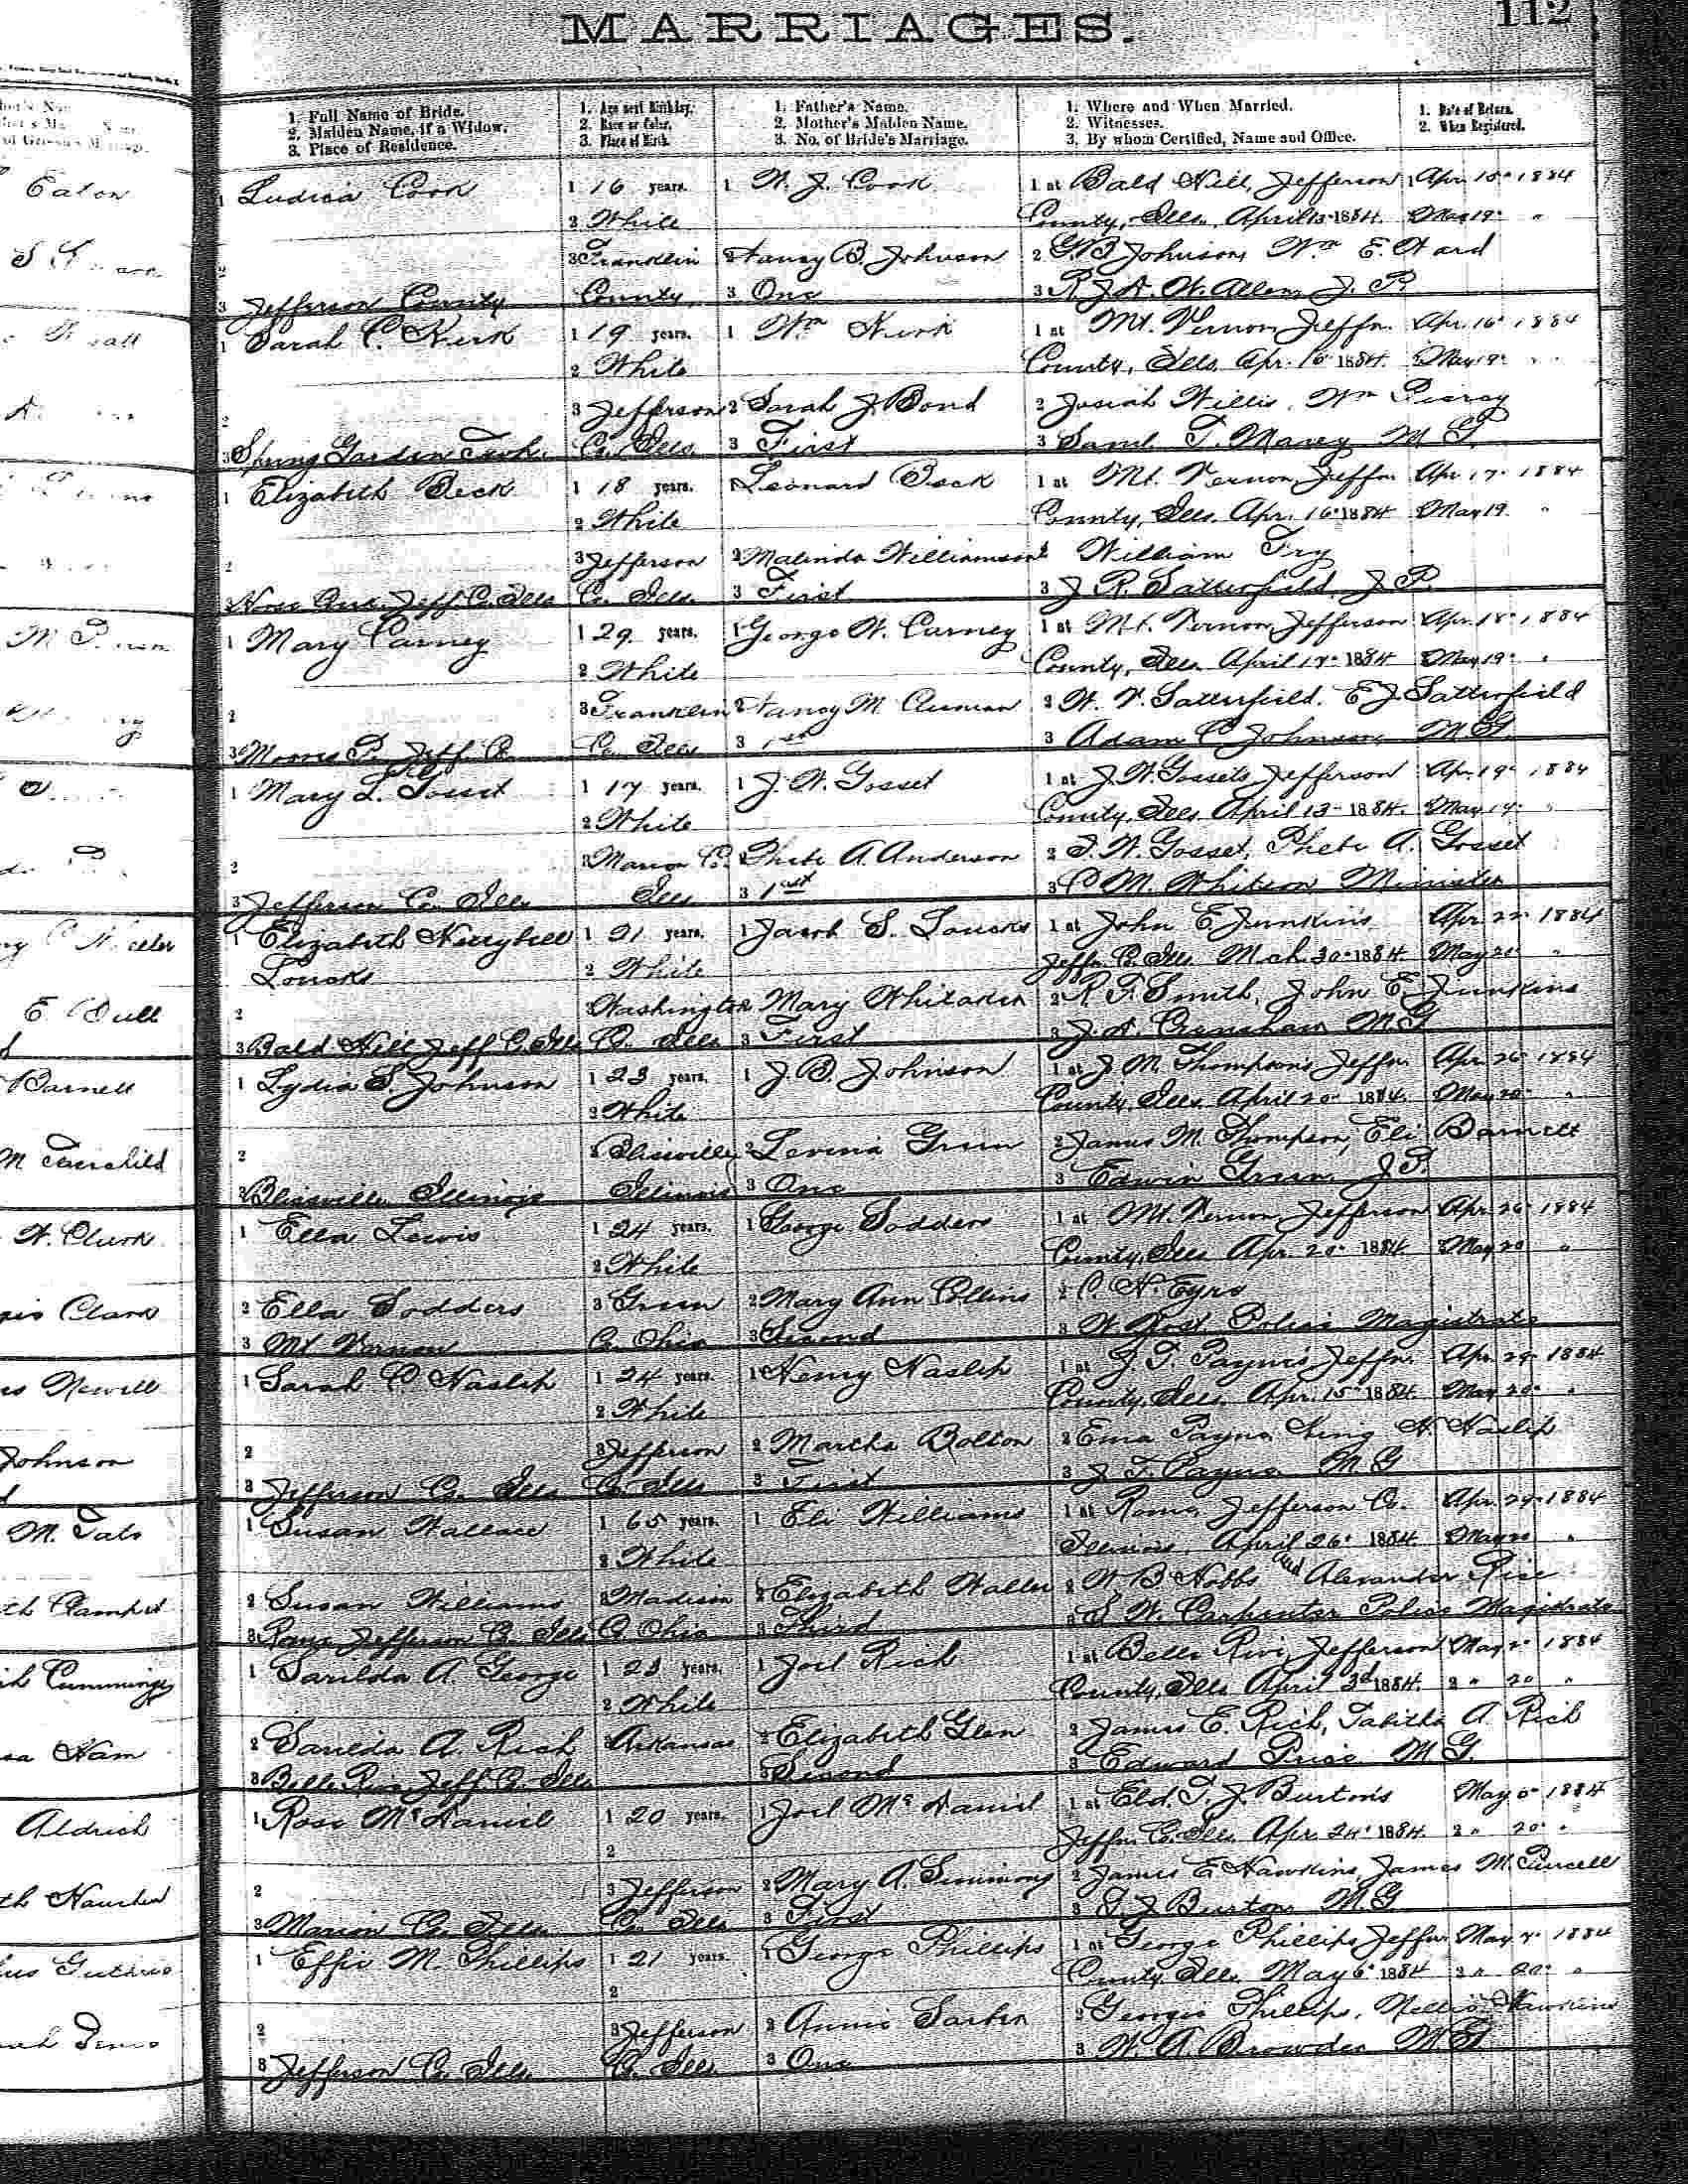 MARRIAGES.
112
1. Full Name of Bride.
2. Maiden Name, if a Widow.
3. Place of Residence.
1. Age next Birthday.
2. Race or Color.
3. Place of Birth.
1. Father's Name.
2. Mother's Maiden Name.
3. No. of Bride's Marriage.
1. Where and When Married.
2. Witnesses.
3. By whom Certified, Name and Office.
1. Date of Return.
2. When Registered.
Eaton
1 Ludica Cook 1 16 years. 1 W. J. Cook 1 at Bald Hill, Jefferson 1 Apr. 15 1884
2 White County, Ills. April 13 1884. 2 May 19 "
2 3 Franklin 2 Nancy B. Johnson 2 G. B. Johnson, Wm E. Ward
3 Jefferson County County, 3 One 3 R. J. A. W. Allen, J. P.
1 Sarah C. Kirk 1 19 years. 1 Wm Kirk 1 at Mt. Vernon, Jeffn. Apr. 16 1884
2 White County, Ills. Apr. 16 1884. 2 May 19 "
2 3 Jefferson 2 Sarah J. Bond 2 Josiah Willis, Wm Piercy
3 Spring Garden Twsh. Co. Ills. 3 First 3 Saml. T. Maxey M. G.
1 Elizabeth Beck 1 18 years. 1 Leonard Beck 1 at Mt. Vernon, Jeffn. Apr. 17 1884
2 White County, Ills. Apr. 16 1884 2 May 19 "
2 3 Jefferson 2 Malinda Williamson 2 William Fry
3 Jeff. C. Ills Co. Ills. 3 First 3 J. R. Satterfield, J. P.
1 Mary Carney 1 29 years. 1 George W. Carney 1 at Mt. Vernon, Jefferson Apr. 18 1884
2 White County, Ills. April 17 1884 2 May 19 "
2 3 Franklin 2 Nancy M. 2 W. V. Satterfield. E J Satterfield
3 Moores P. Jeff. Co. Co. Ills 3 1st 3 Adam C. Johnson, M G.
1 Mary L. Gosset 1 17 years. 1 J. W. Gosset 1 at J. W. Gossets Jefferson Apr. 19 1884
2 White County, Ills. April 13 1884. 2 May 19 "
2 3 Marion Co. 2 Phebe A. Anderson 2 J. W. Gosset, Phebe A. Gosset
3 Jefferson Co. Ills Ills 3 1st 3 C. M. Whitson Minister
1 Elizabeth Nerrybell 1 21 years. 1 Jacob S. Loucks 1 at John E. Junkins Apr. 22 1884
Loucks 2 White Jeffn. C. Ills Mch. 30 1884. May 20 "
2 Washington 2 Mary Whitaker 2 R. F. Smith, John E Junkins
3 Bald Hill Jeff C. Ills Co. Ills 3 First 3 J. A. Crenshaw M G
E. Dull
Barnett
1 Lydia S. Johnson 1 23 years. 1 J. B. Johnson 1 at J. M. Thompson's Jeffn. Apr. 26 1884
2 White County, Ills. April 20 1884. May 20 "
2 3 Blissville 2 Levina Green 2 James M. Thompson, Eli Barnett
M Fairchild
3 Blissville Illinois Illinois 3 One 3 Edwin Green, J. P.
W. Clark
1 Ella Lewis 1 24 years. 1 George Sodders 1 at Mt. Vernon, Jefferson Apr. 26 1884
2 White County, Ills Apr. 20 1884. 2 May 20 "
Clark
2 Ella Sodders 3 Green 2 Mary Ann Collins 2 C. H. Eyre
3 Mt Vernon Co. Ohio 3 Second 3 W. Yost Police Magistrate
Newell
1 Sarah C. Haslip 1 24 years. 1 Henry Haslip 1 at J. T. Payne's Jeffn. Apr. 29 1884
2 White County, Ills. Apr. 15 1884. May 20 "
Johnson
2 3 Jefferson 2 Martha Bolton 2 Ema Payne, King H. Haslip
3 Jefferson Co. Ills Co. Ills 3 First 3 J. T. Payne M G
M. Tate
1 Susan Wallace 1 65 years. 1 Eli Williams 1 at Rome, Jefferson Co. Apr. 29 1884
2 White Illinois, April 26 1884. May 20 "
2 Susan Williams 3 Madison 2 Elizabeth Waller 2 W. B. Hobbs and Alexander Rice
3 Rome Jefferson C. Ills C. Ohio 3 Third 3 S. W. Carpenter Police Magistrate
Cummings
1 Sarilda A. George 1 23 years. 1 Joel Rich 1 at Belle Rive, Jefferson May 2 1884
2 White County, Ills April 3d 1884. 2 " 20 "
Ham
2 Sarilda A. Rich Arkansas 2 Elizabeth Glen 2 James E. Rich, Tabitha A. Rich
3 Belle Rive Jeff C. Ills 3 Second 3 Edward Price M. G.
Aldrich
1 Rose McDaniel 1 20 years. 1 Joel McDaniel 1 at Eld. T. J. Burton's May 5 1884
2 Jeffn. C. Ills. Apr. 24 1884. 2 " 20 "
2 3 Jefferson 2 Mary A. Simmons 2 James E Hawkins, James M. Purcell
3 Marion Co. Ills. Co. Ills 3 First 3 T. J. Burton M. G
Guthrie
1 Effie M. Phillips 1 21 years. 1 George Phillips 1 at George Phillips Jeffn. May 7 1884
2 County Ills. May 6 1884 2 " 20 "
2 3 Jefferson 2 Annie 2 Georgie Phillips, Nellie Hawkins
3 Jefferson C. Ills. C. Ills. 3 One 3 W. A. Browder M. G.